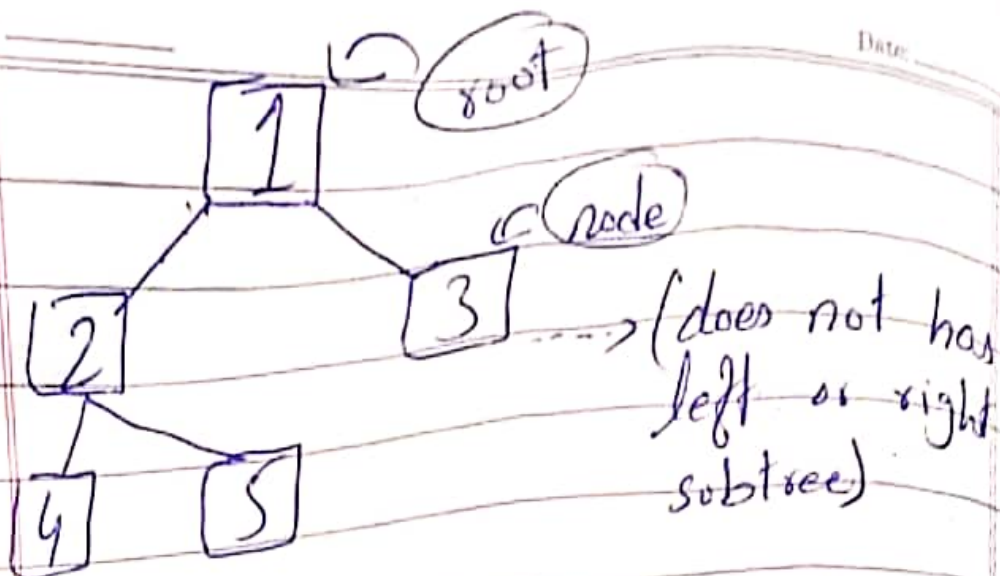 Date:
root
1
node
3
2
(does not has
left or right
subtree)
4
5